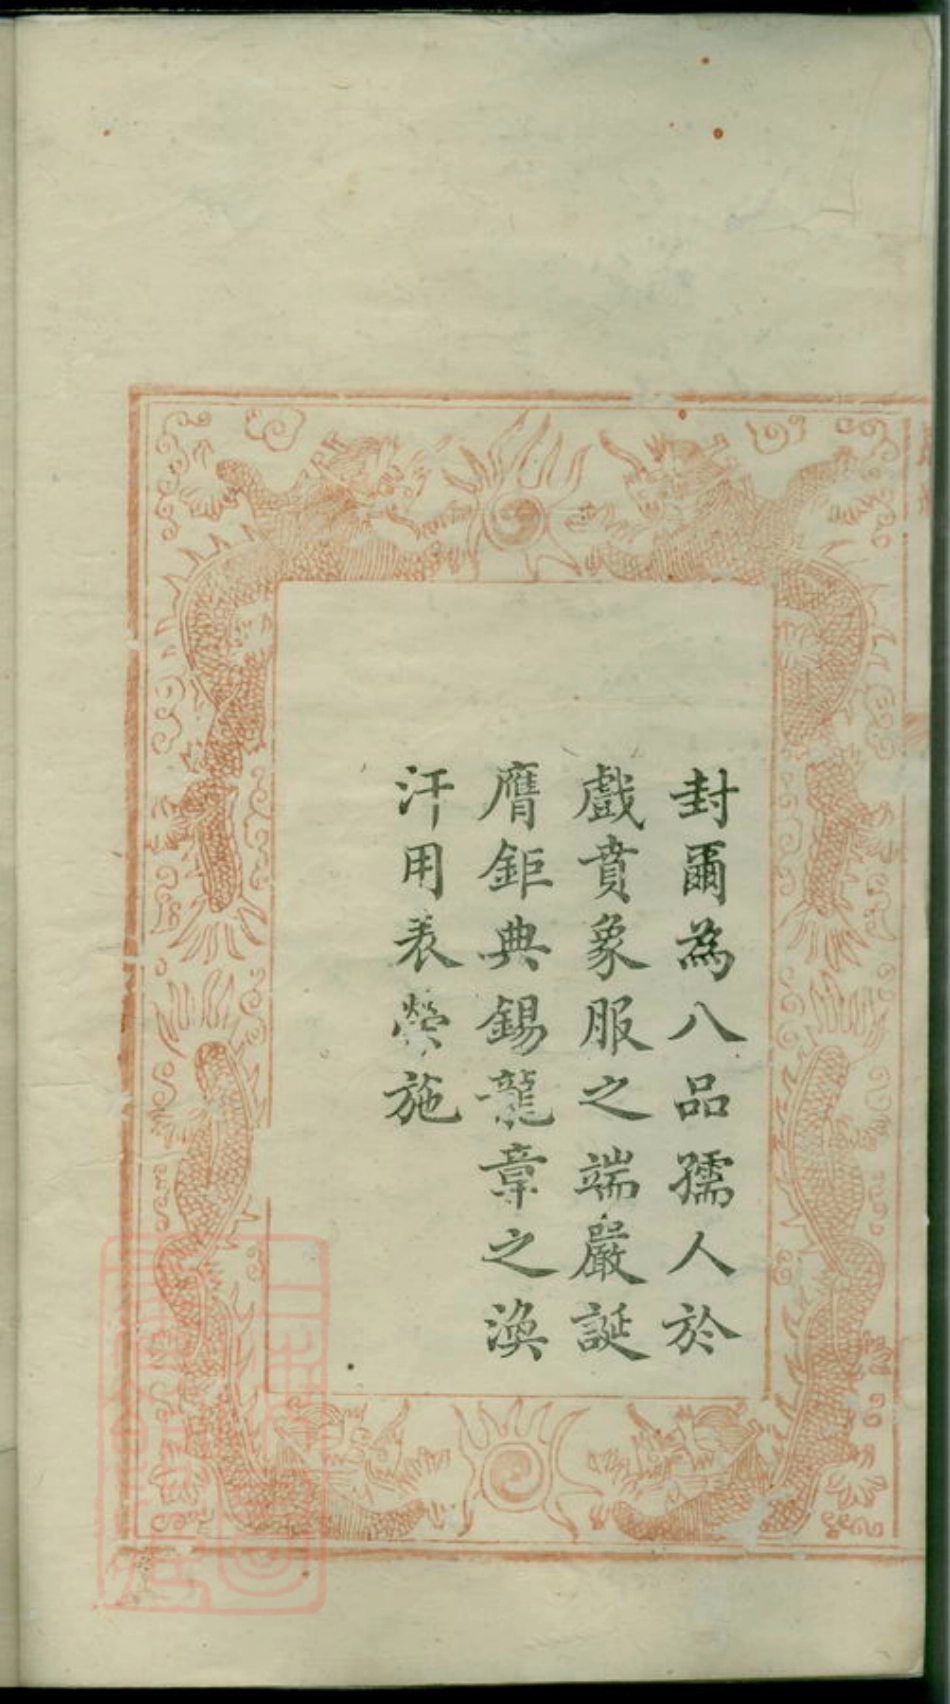 封爾為八品孺人於
戲賁象服之端嚴誕
膺鉅典錫龍章之渙
汗用表榮施